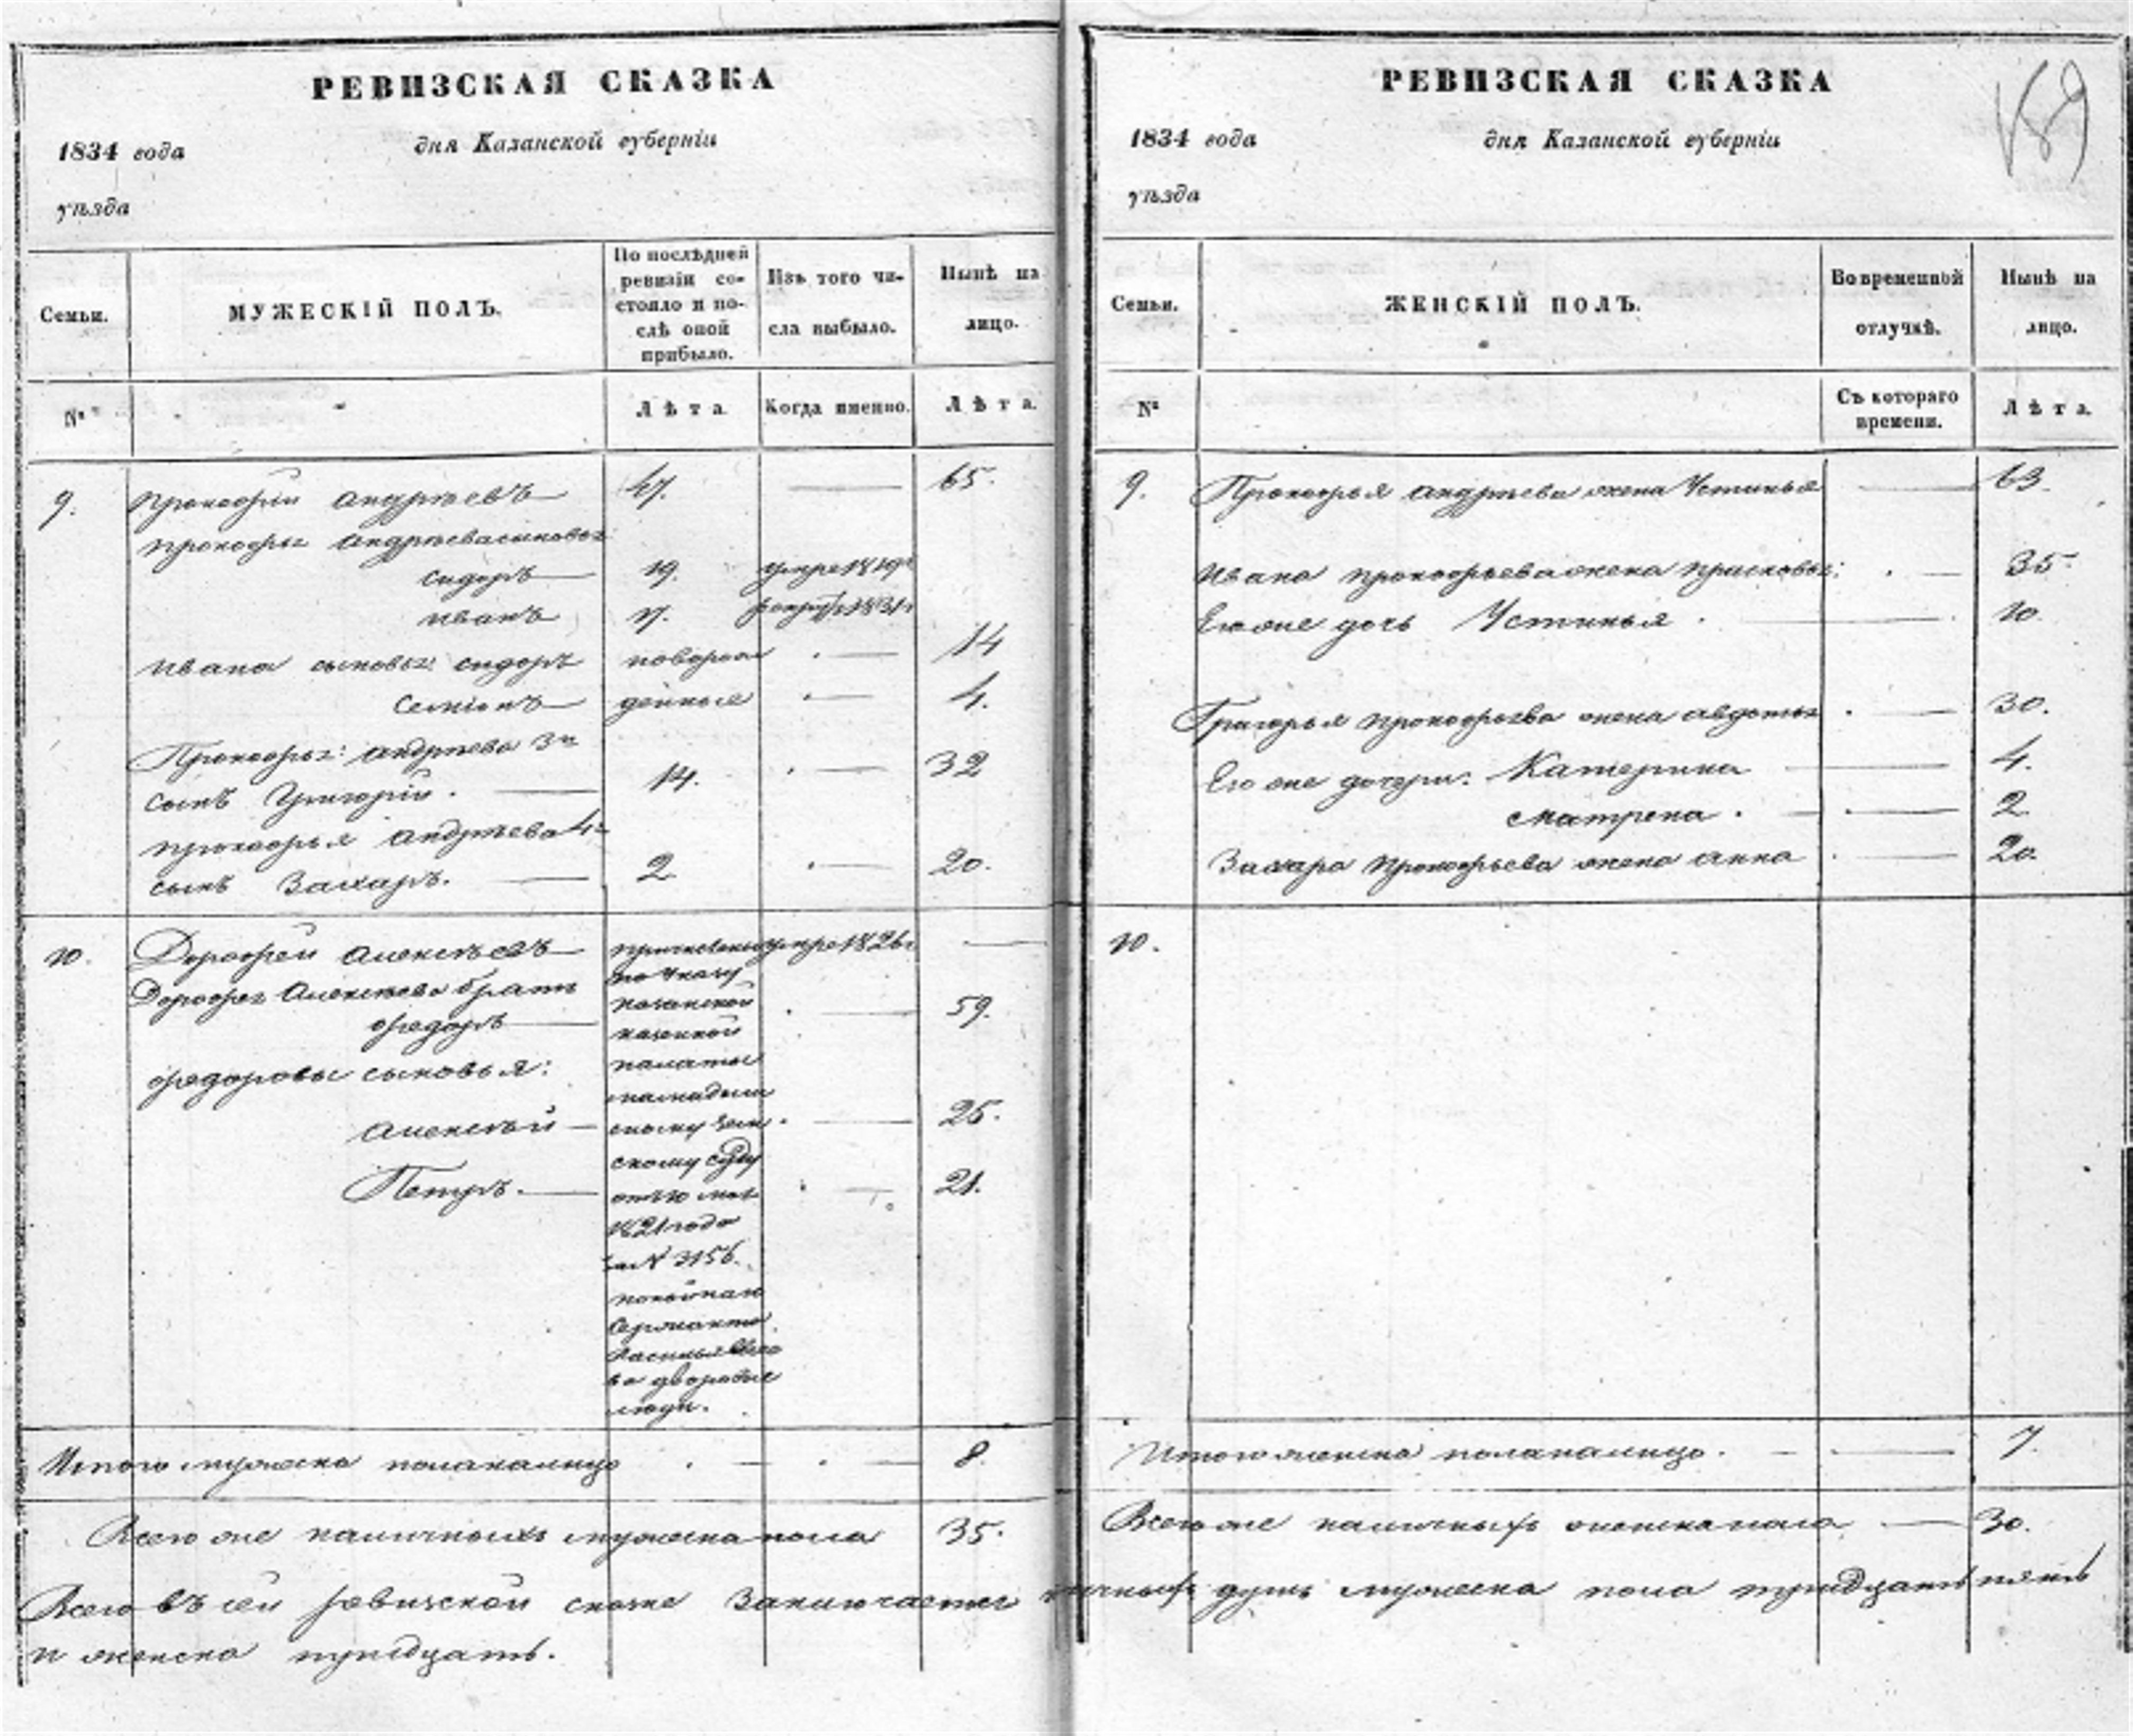 РЕВИЗСКАЯ СКАЗКА
1834 года дня Казанской губерніи
уѣзда
Семьи.
МУЖЕСКІЙ ПОЛЪ.
По послѣдней ревизіи состояло и послѣ оной прибыло.
Изъ того числа выбыло.
Нынѣ на лицо.
№
Лѣта.
Когда именно.
Лѣта.
9. Прокофій Андрѣевъ 47. 65.
Прокофья Андрѣева сыновья:
Сидоръ 19. умре 1819
Иванъ 17. 1831
Ивана сыновья: Сидоръ новорож 14
Семіонъ денные 4.
Прокофья Андрѣева 3й
сынъ Григорій. 14. 32
Прокофья Андрѣева 4й
сынъ Захаръ. 2 20.
10. Дорофей Алексѣевъ умре 1826
Дорофея Алексѣева братъ
Федоръ 59.
Федоровы сыновья:
Алексѣй 25.
Петръ. 21.
по указу
казанской
казенной
палаты
скому суду
1821 года
за № 3156.
Сержанта
Василья
дворовые
люди.
Итого мужеска пола на лицо 8.
Всего же наличныхъ мужеска пола 35.
РЕВИЗСКАЯ СКАЗКА
189
1834 года дня Казанской губерніи
уѣзда
Семьи.
ЖЕНСКІЙ ПОЛЪ.
Во временной отлучкѣ.
Нынѣ на лицо.
№
Съ котораго времени.
Лѣта.
9. Прокофья Андрѣева жена Устинья 63.
Ивана Прокофьева жена Прасковья: 35
Его же дочь Устинья. 10
Григорья Прокофьева жена Авдотья 30.
Его же дочери: Катерина 4.
Матрена. 2
Захара Прокофьева жена Анна 20.
10.
Итого женска пола на лицо. 7
Всего же наличныхъ женска пола 30.
Всего въ сей ревизской сказке заключается наличныхъ душъ мужеска пола тридцать пять
и женска тридцать.